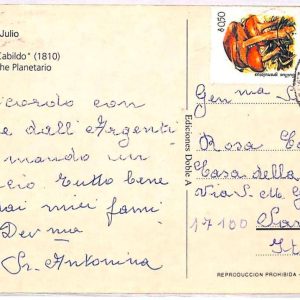 Julio
Cabildo" (1810)
he Planetario
₳0,50
Ediciones Doble A
icordo con
e dall'Argenti
mando un
cio. tutto bene
ai miei fami
Dev.ma
Sr. Antonina
Gen.ma
Rosa
Casa della
Via S. M. G
17100
It
REPRODUCCION PROHIBIDA